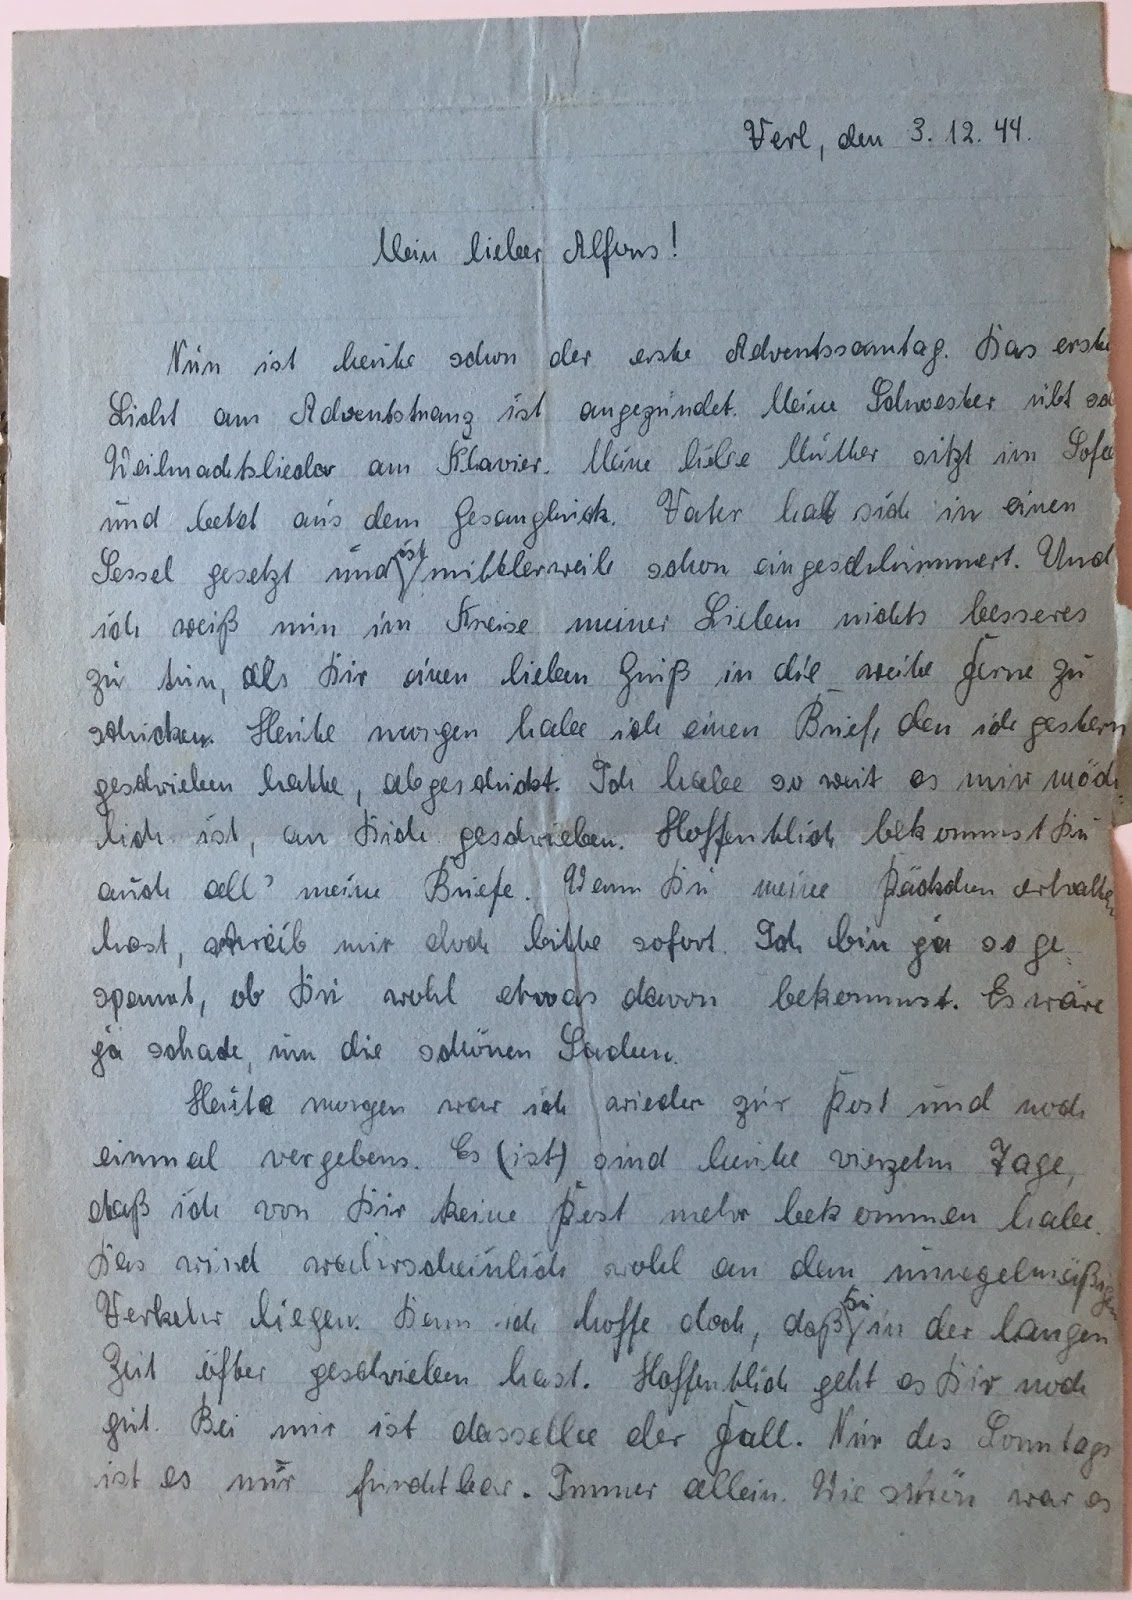 Verl, den 3. 12. 44.
Mein lieber Alfons!
Nun ist heute schon der erste Adventssonntag. Das erste
Licht am Adventskranz ist angezündet. Meine Schwester übt
Weihnachtslieder am Klavier. Meine liebe Mutter sitzt im Sofa
und betet aus dem Gesangbuch. Vater hat sich in einen
Sessel gesetzt und ist mittlerweile schon eingeschlummert. Und
ich weiß nun im Kreise meiner Lieben nichts besseres
zu tun, als Dir einen lieben Gruß in die weite Ferne zu
schicken. Heute morgen habe ich einen Brief, den ich gestern
geschrieben hatte, abgeschickt. Ich habe so weit es mir mög-
lich ist, an Dich geschrieben. Hoffentlich bekommst Du
auch all' meine Briefe. Wenn Du meine Päckchen erhalten
hast, schreib mir doch bitte sofort. Ich bin ja so ge-
spannt, ob Du wohl etwas davon bekommst. Es wäre
ja schade, um die schönen Sachen.
Heute morgen war ich wieder zur Post und noch
einmal vergebens. Es (ist) sind heute vierzehn Tage,
daß ich von Dir keine Post mehr bekommen habe.
Das wird wahrscheinlich wohl an dem unregelmäßigen
Verkehr liegen. Denn ich hoffe doch, daß Du in der langen
Zeit öfter geschrieben hast. Hoffentlich geht es Dir noch
gut. Bei mir ist dasselbe der Fall. Nur des Sonntags
ist es mir furchtbar. Immer allein. Wie schön war es